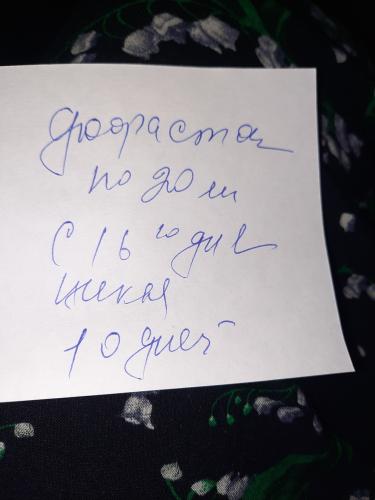 Дюфастон
по 20 м
с 16 го дня
цикла
10 дней